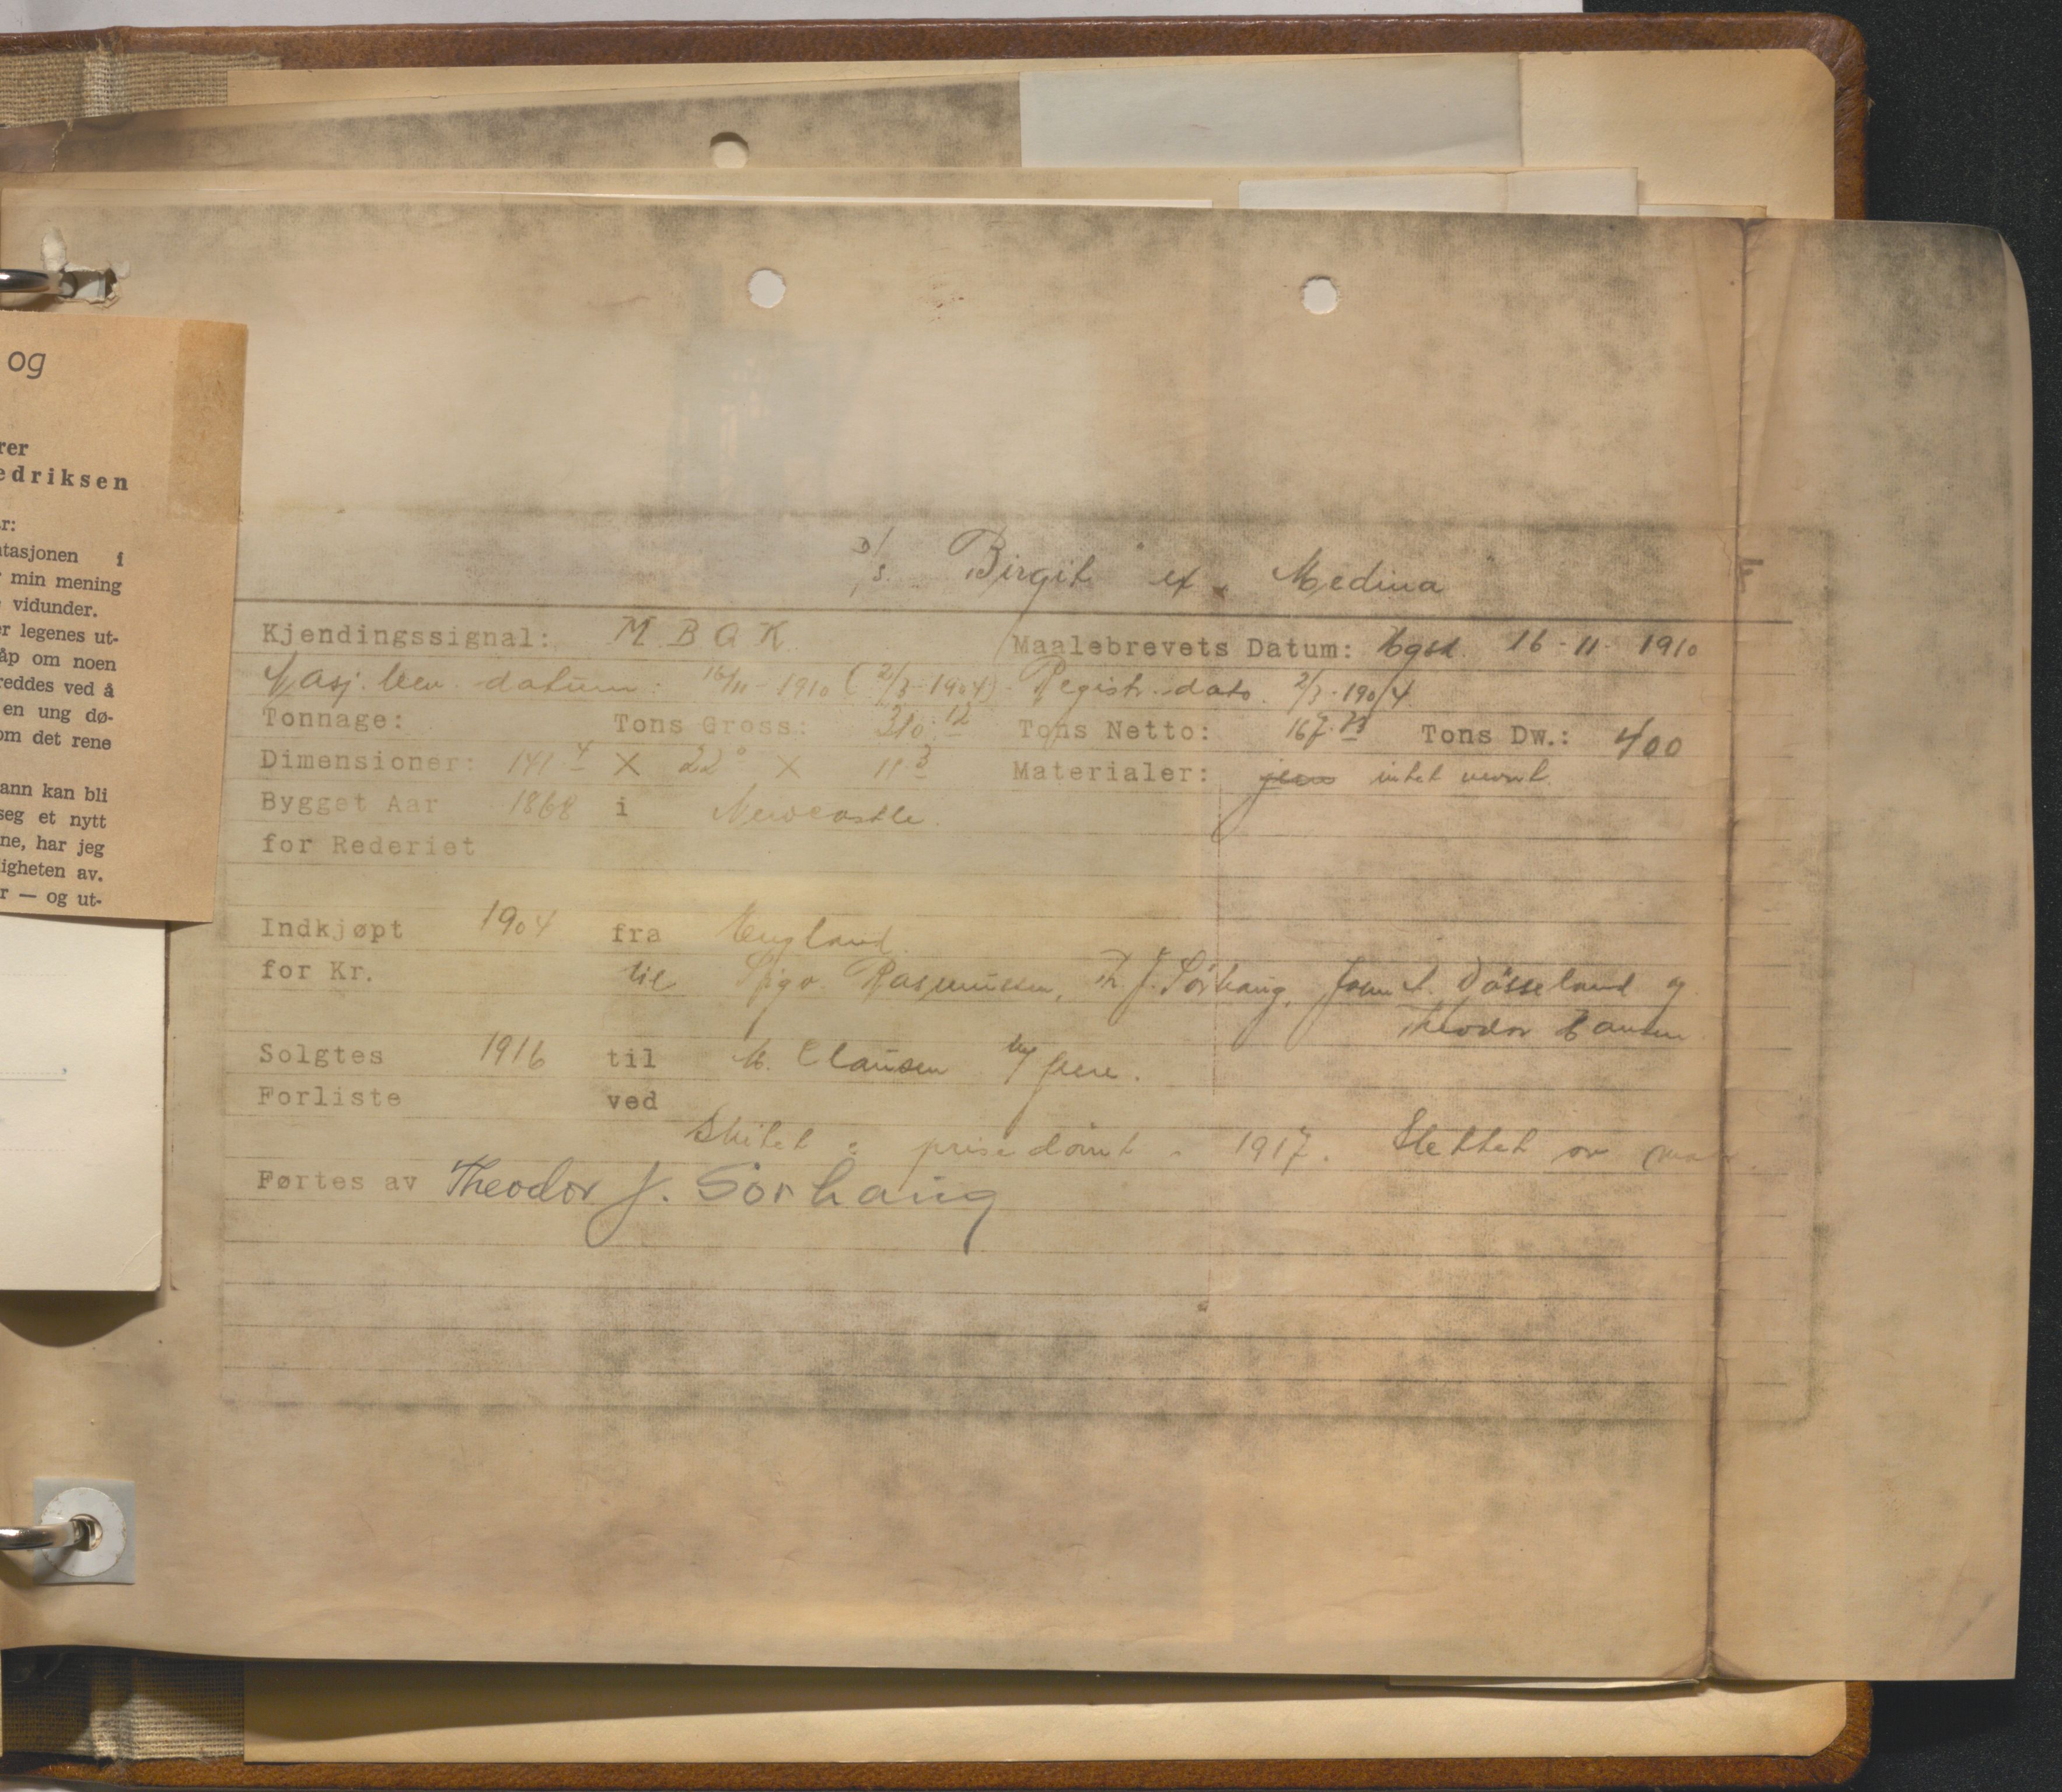 og
rer
edriksen
r:
tasjonen i
min mening
vidunder.
er legenes ut-
åp om noen
reddes ved å
en ung dø-
om det rene
ann kan bli
seg et nytt
ne, har jeg
igheten av.
r — og ut-
D/S. "Birgit" ex "Medina"
Kjendingssignal: M B Q K Maalebrevets Datum: Hgsd. 16-11-1910
Nasj. bev. datum: 16/11-1910 (2/3-1904). Registr. dato. 2/3-1904
Tonnage: Tons Gross: 310.12 Tons Netto: 167.73 Tons Dw.: 400
Dimensioner: 141.4 X 22° X 11.3 Materialer: intet nevnt.
Bygget Aar 1868 i Newcastle.
for Rederiet
Indkjøpt 1904 fra England.
for Kr. til Rasmussen, Th. J. Sörhaug, John A. og
Theodor Hansen.
Solgtes 1916 til M. Clausen
Forliste ved
prisedömt 1917. Slettet av
Førtes av Theodor J. Sörhaug